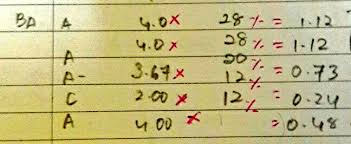 BA A 4.0 x 28 % = 1.12
A 4.0 x 28 % = 1.12
A- 3.67 x 20 % = 0.73
C 2.00 x 12 % = 0.24
A 4.00 x 12 % = 0.48